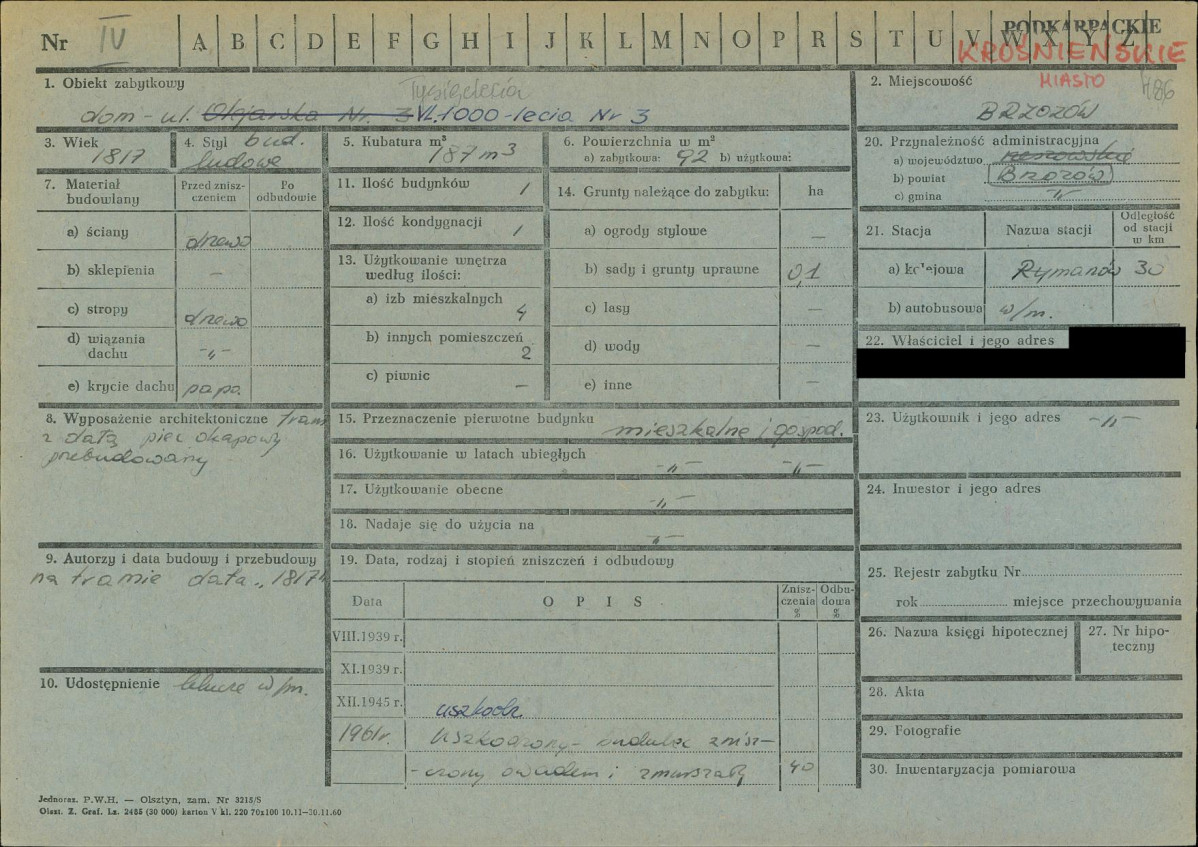 Nr IV A B C D E F G H I J K L M N O P R S T U V W X Y Z
PODKARPACKIE
KROŚNIEŃSKIE
MIASTO
1. Obiekt zabytkowy
Tysiąclecia
dom - ul. Olejarska Nr. 3 VI. 1000-lecia Nr 3
2. Miejscowość
BRZOZÓW
3. Wiek
1817
4. Styl bud.
ludowe
5. Kubatura m³
187 m3
6. Powierzchnia w m²
a) zabytkowa: 92 b) użytkowa:
7. Materiał budowlany
Przed zniszczeniem
Po odbudowie
a) ściany drzewo
b) sklepienia —
c) stropy drzewo
d) wiązania dachu -„-
e) krycie dachu papa.
8. Wyposażenie architektoniczne tram
z datą piec okapowy
przebudowany
9. Autorzy i data budowy i przebudowy
na tramie data „1817"
10. Udostępnienie klucze w/m.
11. Ilość budynków 1
12. Ilość kondygnacji 1
13. Użytkowanie wnętrza
według ilości:
a) izb mieszkalnych
4
b) innych pomieszczeń
2
c) piwnic —
14. Grunty należące do zabytku: ha
a) ogrody stylowe —
b) sady i grunty uprawne 0,1
c) lasy —
d) wody —
e) inne —
15. Przeznaczenie pierwotne budynku
mieszkalne i gospod.
16. Użytkowanie w latach ubiegłych
-„- -„-
17. Użytkowanie obecne
-„-
18. Nadaje się do użycia na
-„-
19. Data, rodzaj i stopień zniszczeń i odbudowy
Data
O P I S
Zniszczenia %
Odbudowa %
VIII.1939 r.
XI.1939 r.
XII.1945 r. uszkodz
1961r. uszkodzony - budulec znisz-
-czony owadem i zmurszały 40
20. Przynależność administracyjna
a) województwo rzeszowskie
b) powiat Brzozów
c) gmina -„-
21. Stacja
Nazwa stacji
Odległość od stacji w km
a) kolejowa Rymanów 30
b) autobusowa w/m.
22. Właściciel i jego adres
23. Użytkownik i jego adres -„-
24. Inwestor i jego adres
25. Rejestr zabytku Nr
rok miejsce przechowywania
26. Nazwa księgi hipotecznej
27. Nr hipoteczny
28. Akta
29. Fotografie
30. Inwentaryzacja pomiarowa
Jednoraz. P.W.H. — Olsztyn, zam. Nr 3215/5
Olszt. Z. Graf. Lz. 2485 (30 000) karton V kl. 220 70x100 10.11—30.11.60